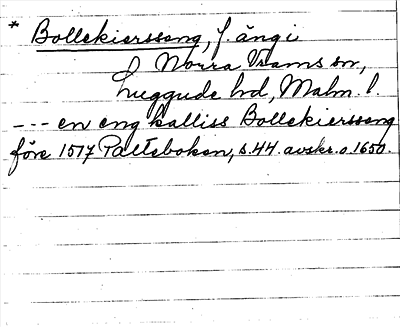 * Bollekierssong, f. äng i
Norra Vrams sn,
Luggude hd, Malm. l.
--- en eng kalliss Bollekierssong
före 1517 Palteboken, s. 44. avskr. o. 1650.